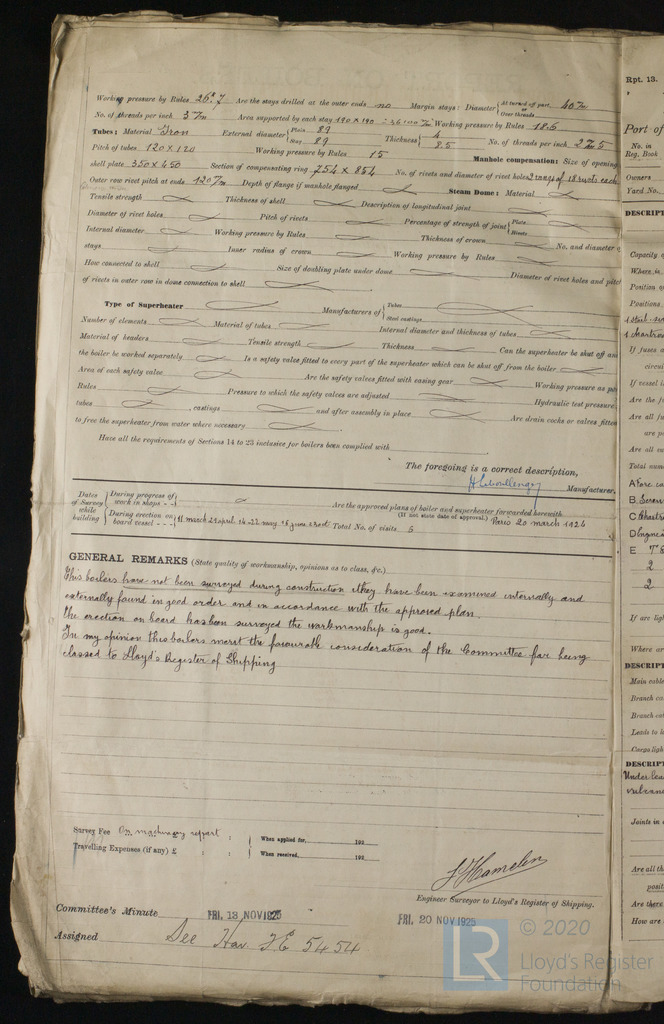 Working pressure by Rules 26.7 Are the stays drilled at the outer ends no Margin stays: Diameter { At turned off part, or Over threads 40 m/m
No. of threads per inch 3 7/m Area supported by each stay 190 x 190 Working pressure by Rules 18.6
Tubes: Material Iron External diameter { Plain 89 Stay 89 Thickness { 4 8.5 No. of threads per inch 2 7/m 5
Pitch of tubes 120 x 120 Working pressure by Rules 15 Manhole compensation: Size of opening
shell plate 350 x 450 Section of compensating ring 754 x 854 No. of rivets and diameter of rivet holes 2 range of 18 rivets each
Outer row rivet pitch at ends 120 7/m Depth of flange if manhole flanged Steam Dome: Material
Tensile strength Thickness of shell Description of longitudinal joint
Diameter of rivet holes Pitch of rivets Percentage of strength of joint { Plate Rivets
Internal diameter Working pressure by Rules Thickness of crown No. and diameter of
stays Inner radius of crown Working pressure by Rules
How connected to shell Size of doubling plate under dome Diameter of rivet holes and pitch
of rivets in outer row in dome connection to shell
Type of Superheater Manufacturers of { Tubes Steel castings
Number of elements Material of tubes Internal diameter and thickness of tubes
Material of headers Tensile strength Thickness Can the superheater be shut off and
the boiler be worked separately Is a safety valve fitted to every part of the superheater which can be shut off from the boiler
Area of each safety valve Are the safety valves fitted with easing gear Working pressure as per
Rules Pressure to which the safety valves are adjusted Hydraulic test pressure:
tubes , castings and after assembly in place Are drain cocks or valves fitted
to free the superheater from water where necessary
Have all the requirements of Sections 14 to 23 inclusive for boilers been complied with
The foregoing is a correct description,
Manufacturer.
Dates of Survey while building { During progress of work in shops - - Are the approved plans of boiler and superheater forwarded herewith
(If not state date of approval.) Paris 20 march 1924
During erection on board vessel - - - Total No. of visits 5
GENERAL REMARKS (State quality of workmanship, opinions as to class, &c.)
This boilers have not been surveyed during construction they have been examined internally and
externally found in good order and in accordance with the approved plan.
the erection on board has been surveyed the workmanship is good.
In my opinion this boilers merit the favourable consideration of the Committee for being
classed to Lloyd's Register of Shipping
Survey Fee On machinery report : : When applied for, 192
Travelling Expenses (if any) £ : : When received, 192
J Hamelin
Engineer Surveyor to Lloyd's Register of Shipping.
Committee's Minute FRI. 13 NOV 1925 FRI. 20 NOV 1925
Assigned See Hav. F.E. 5454
© 2020
LR Lloyd's Register
Foundation
Rpt. 13.
Port of
No. in
Reg. Book
Owners
Yard No.
DESCRIPT
Capacity of
Where is
Position of
Positions
If fuses a
circui
If vessel i
Are the f
Are all fu
are p
Are all s
Total num
B
C
D
E
2
2
If arc lig
Where ar
DESCRIP
Main cable
Branch ca
Branch cab
Leads to l
Cargo ligh
DESCRIPT
Joints in
Are all th
posit
Are there
How are